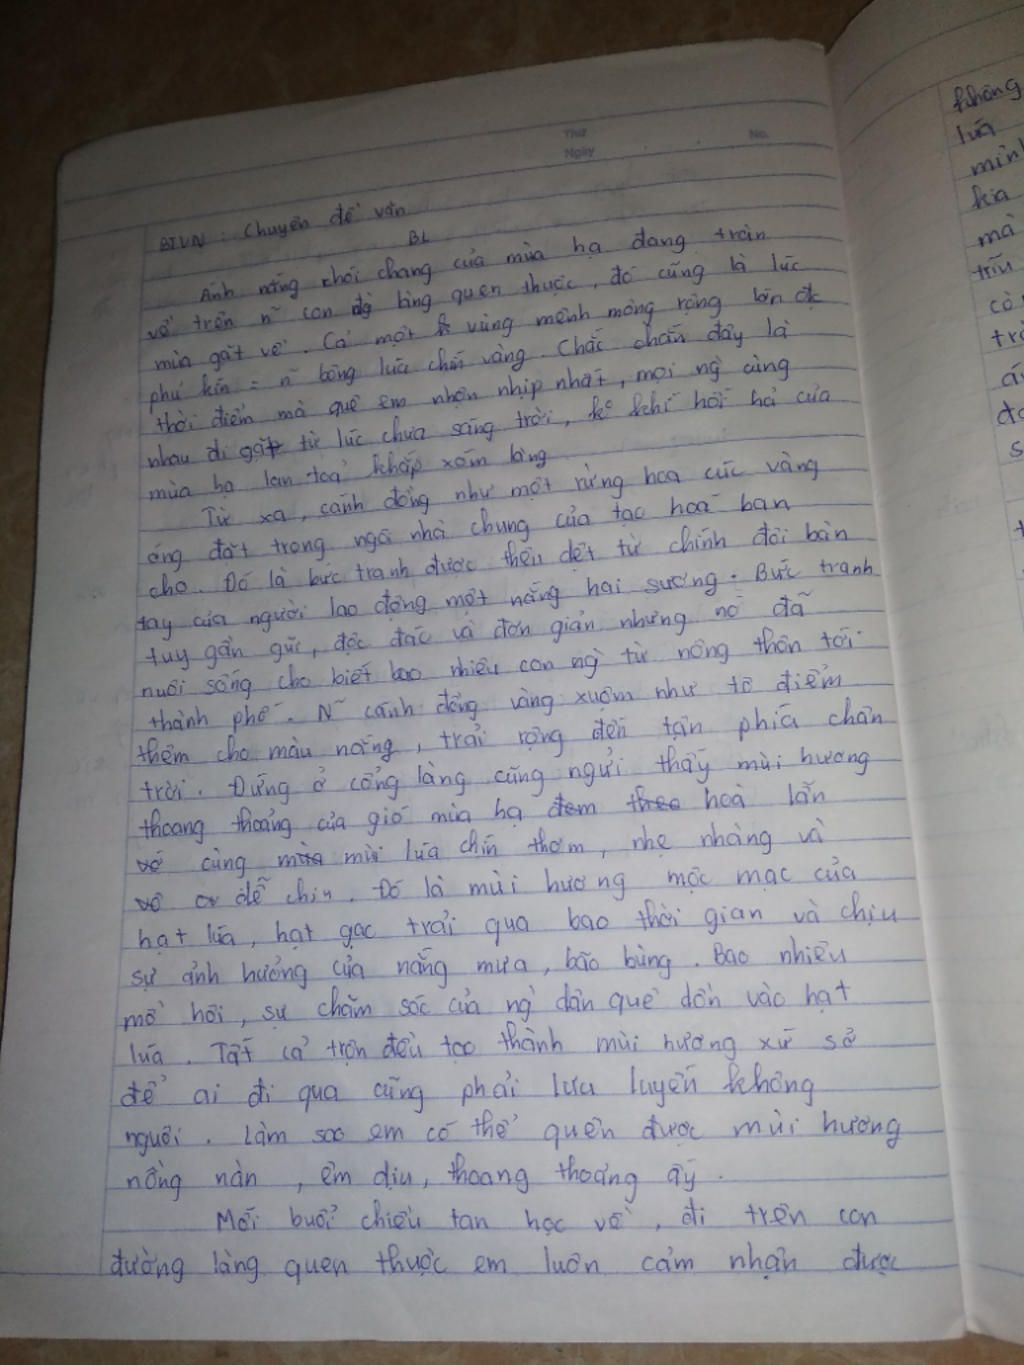 Thứ
No.
Ngày
BTVN : Chuyên đề văn
BL
Ánh nắng chói chang của mùa hạ đang tràn
về trên n~ con làng quen thuộc, đó cũng là lúc
mùa gặt về. Cả một vùng mênh mông rộng lớn đc
phủ kín = n~ bông lúa chín vàng. Chắc chắn đây là
thời điểm mà quê em nhộn nhịp nhất, mọi ng` cùng
nhau đi gặt từ lúc chưa sáng trời, k khí hối hả của
mùa hạ lan toả khắp xóm làng
Từ xa, cánh đồng như một rừng hoa cúc vàng
óng đặt trong ngôi nhà chung của tạo hoá ban
cho. Đó là bức tranh được thêu dệt từ chính đôi bàn
tay của người lao động một nắng hai sương. Bức tranh
tuy gần gũi, độc đáo và đơn giản nhưng nó đã
nuôi sống cho biết bao nhiêu con ng` từ nông thôn tới
thành phố. N~ cánh đồng vàng xuộm như tô điểm
thêm cho màu nắng, trải rộng đến tận phía chân
trời. Đứng ở cổng làng cũng ngửi thấy mùi hương
thoang thoảng của gió mùa hạ đem theo hoà lẫn
vớ cùng mùa mùi lúa chín thơm, nhẹ nhàng và
vô dễ chịu. Đó là mùi hương mộc mạc của
hạt lúa, hạt gạc trải qua bao thời gian và chịu
sự ảnh hưởng của nắng mưa, bão bùng. Bao nhiêu
mồ hôi, sự chăm sóc của ng` dân quê dồn vào hạt
lúa. Tất cả trộn đều tạo thành mùi hương xứ sở
để ai đi qua cũng phải lưu luyến không
nguôi. Làm sao em có thể quên được mùi hương
nồng nàn, êm dịu, thoang thoảng ấy.
Mỗi buổi chiều tan học về, đi trên con
đường làng quen thuộc em luôn cảm nhận được
không
lúa
mình
kia
mà